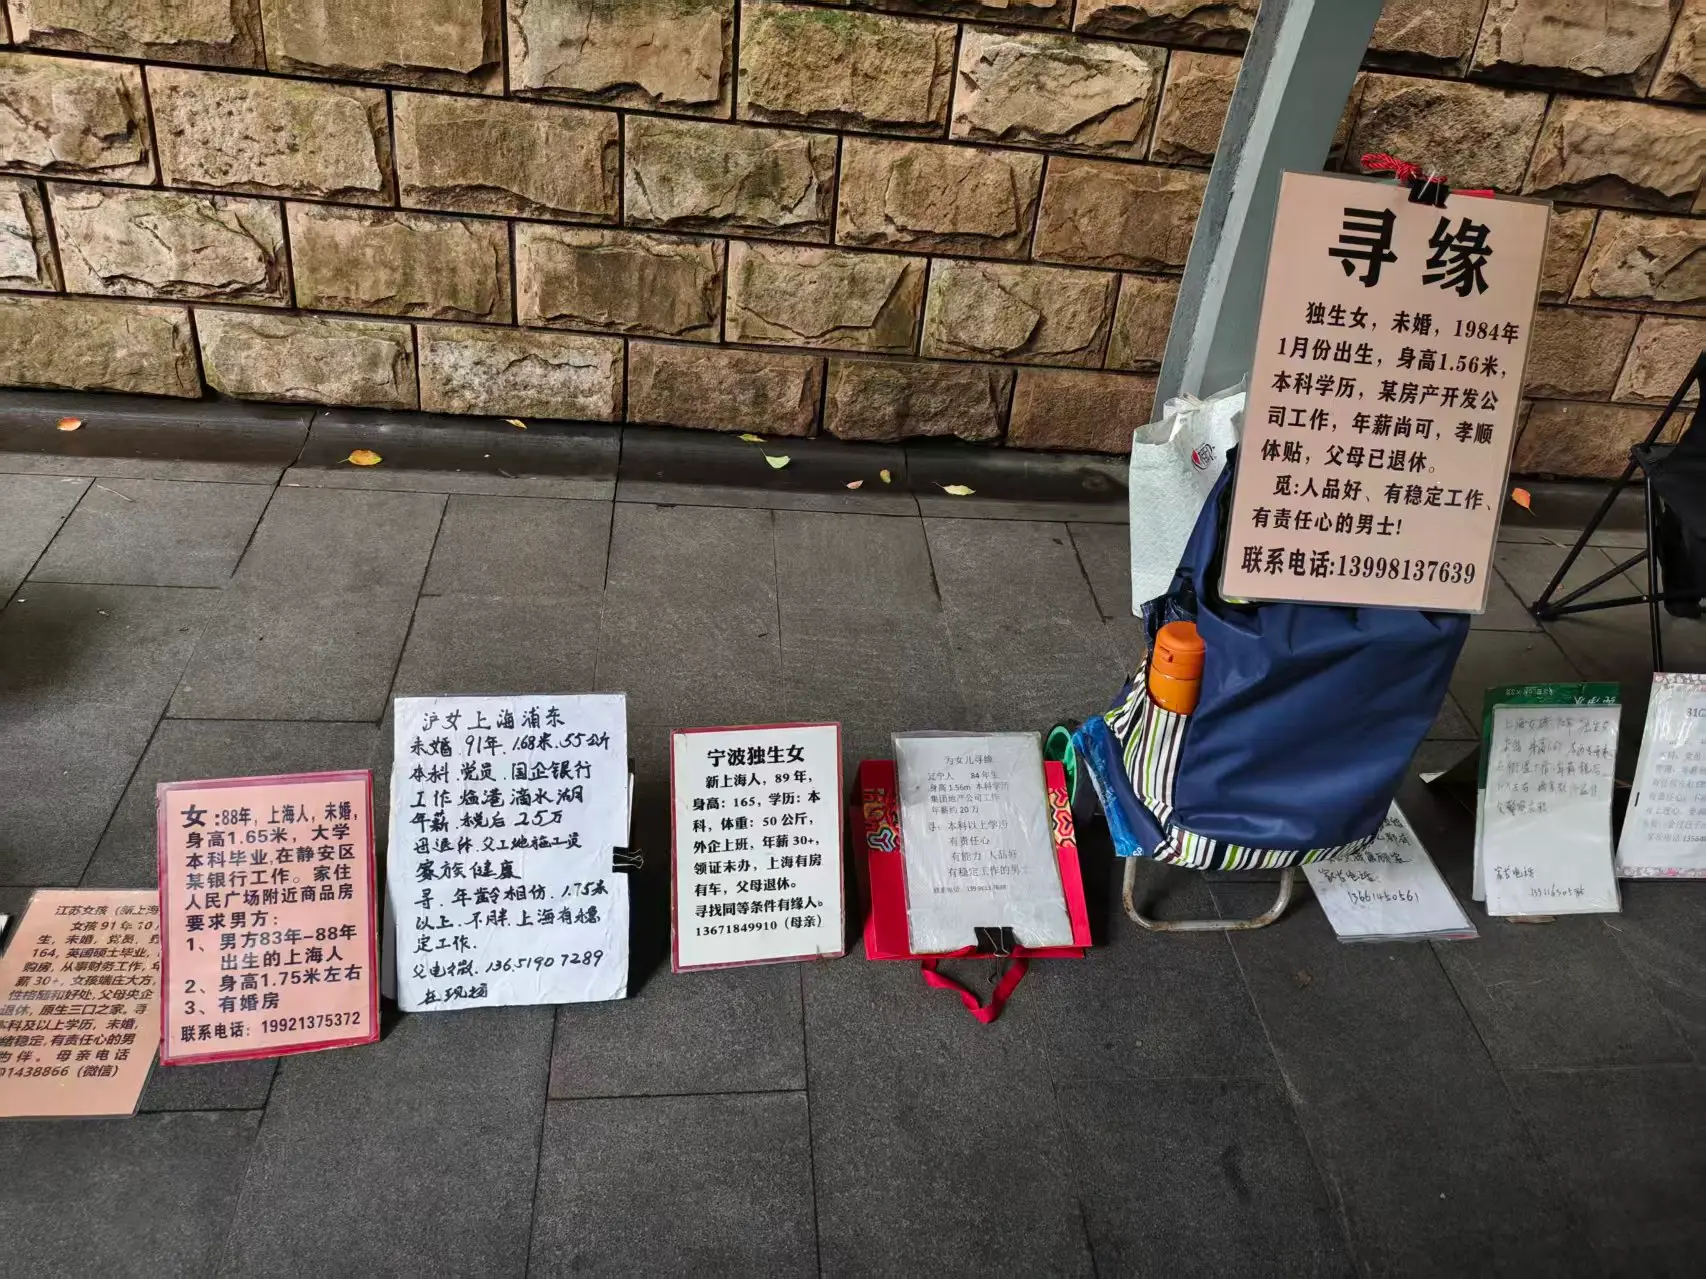 江苏女孩（新上海
女孩91年10月
生，未婚，党员，
164，英国硕士毕业，
购房，从事财务工作，年
薪30+，女孩端庄大方，
性格随和好处，父母央企
退休，原生三口之家。寻
本科及以上学历，未婚，
绪稳定，有责任心的男
为伴。母亲电话
01438866（微信）
女：88年，上海人，未婚，
身高1.65米，大学
本科毕业，在静安区
某银行工作。家住
人民广场附近商品房
要求男方：
1、男方83年-88年
出生的上海人
2、身高1.75米左右
3、有婚房
联系电话：19921375372
沪女上海浦东
未婚.91年.1.68米.55公斤
本科.党员.国企银行
工作 临港滴水湖
年薪.税后25万
母退休.父工地施工员
家族健康
寻.年龄相仿.1.75米
以上.不胖.上海有房稳
定工作.
父电微.13651907289
在现场
宁波独生女
新上海人，89年，
身高：165，学历：本
科，体重：50公斤，
外企上班，年薪30+，
领证未办，上海有房
有车，父母退休。
寻找同等条件有缘人。
13671849910（母亲）
为女儿寻缘
辽宁人 84年生
身高1.56m 本科学历
集团地产公司工作
年薪约20万
寻：本科以上学历
有责任心
有能力 人品好
有稳定工作的男士
联系电话：13998137639
寻缘
独生女，未婚，1984年
1月份出生，身高1.56米，
本科学历，某房产开发公
司工作，年薪尚可，孝顺
体贴，父母已退休。
觅：人品好、有稳定工作、
有责任心的男士！
联系电话：13998137639
家长电话
13661450561
上海女孩 独生女
家长电话